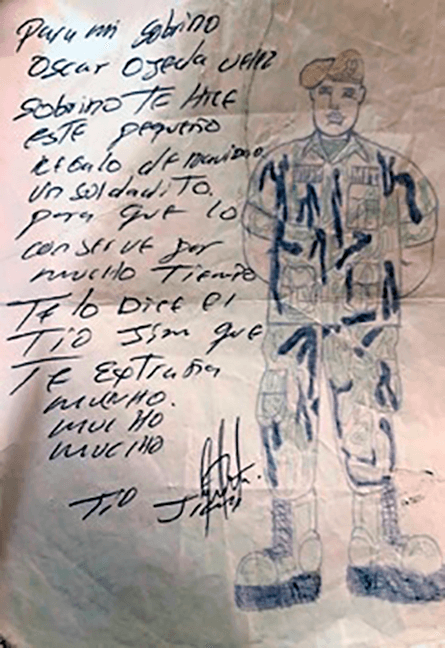 Para mi sobrino
Oscar Ojeda Velez
Sobrino Te Hice
este pequeño
regalo de navidad.
Un soldadito.
para que lo
conserve por
mucho Tiempo
Te lo Dice el
Tio Jim que
Te Extraña
mucho.
mucho
mucho
Tio